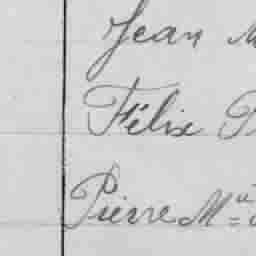 Jean
Félix
Pierre M